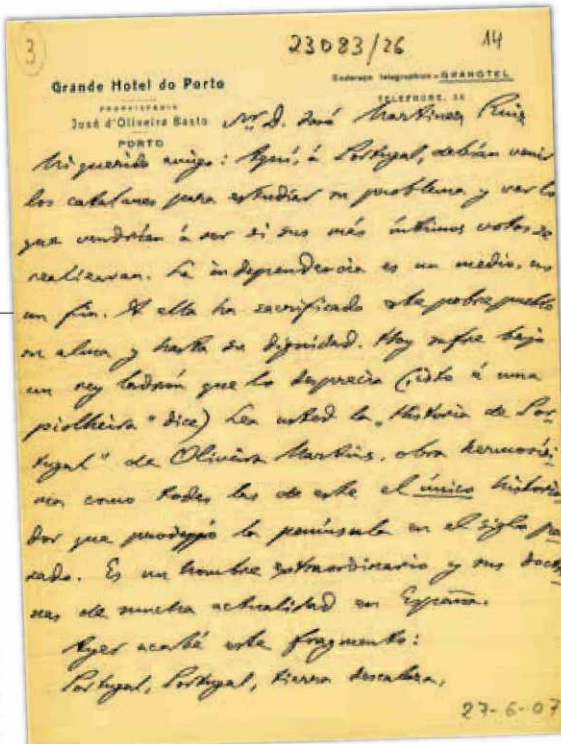 3
23083/26
14
Grande Hotel do Porto
PROPRIETARIO
José d'Oliveira Basto
PORTO
Endereço telegraphico - GRANOTEL
TELEPHONE, 36
Sr. D. José Martinez Ruiz
Mi querido amigo: Aquí, á Portugal, debían venir
los catalanes para estudiar su problema y ver lo
que vendrían á ser si sus más íntimos votos se
realizaran. La independencia es un medio, no
un fin. A ella ha sacrificado este pobre pueblo
su alma y hasta su dignidad. Hoy sufre bajo
un rey ladrón que lo desprecia ("isto é uma
piolheira" dice) Lea usted la "Historia de Por-
tugal" de Oliveira Martins, obra hermosísi-
ma como todas las de este el único historia-
dor que produjo la península en el siglo pa-
sado. Es un hombre extraordinario y sus doctri-
nas de mucha actualidad en España.
Ayer acabé este fragmento:
Portugal, Portugal, tierra descalza,
27-6-07